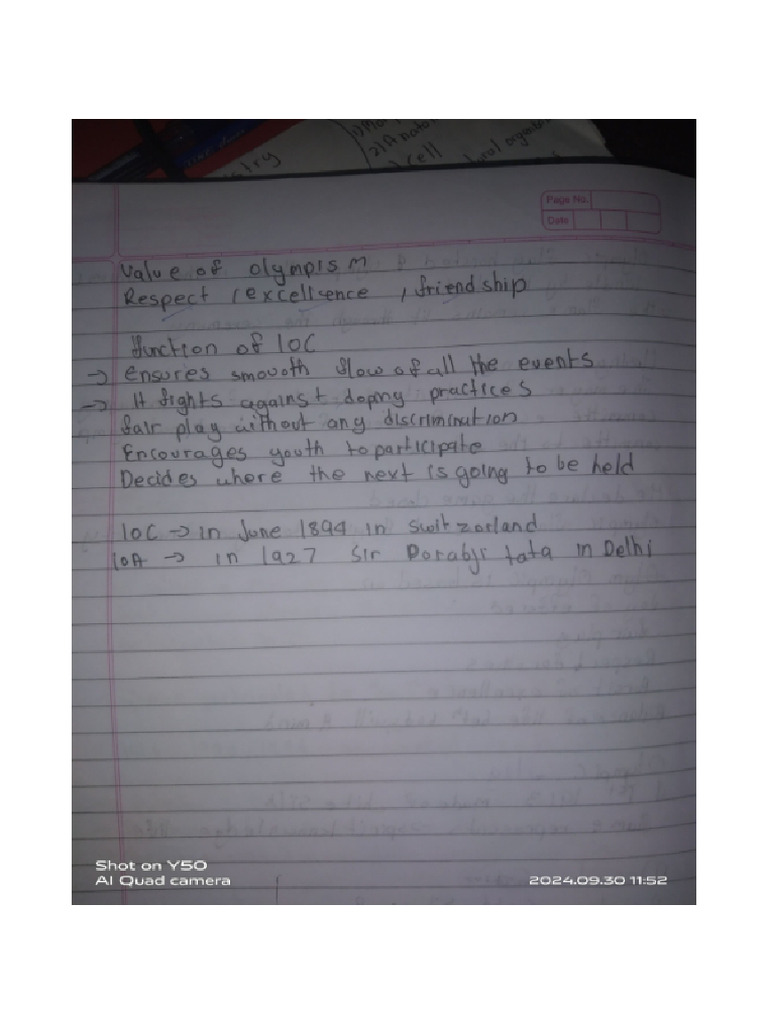 istry
2) Anato
cell
Page No.
Date
Value of olympism
Respect, excellence, friendship
function of IOC
→ ensures smooth flow of all the events
→ It fights against doping practices
fair play without any discrimination
Encourages youth to participate
Decides where the next is going to be held
IOC → in June 1894 in Switzorland
IOA → in 1927 Sir Dorabji tata in Delhi
Shot on Y50
AI Quad camera
2024.09.30 11:52